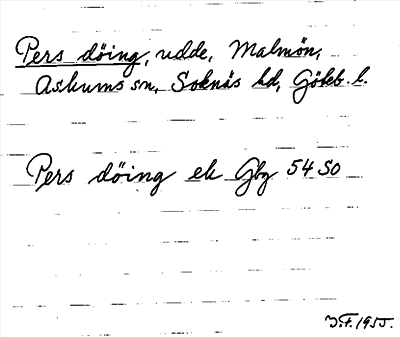 Pers döing, udde, Malmön,
Askums sn, Sotnäs hd, Göteb. l.
Pers döing ek Gbg 54 SO
J.F. 1955.